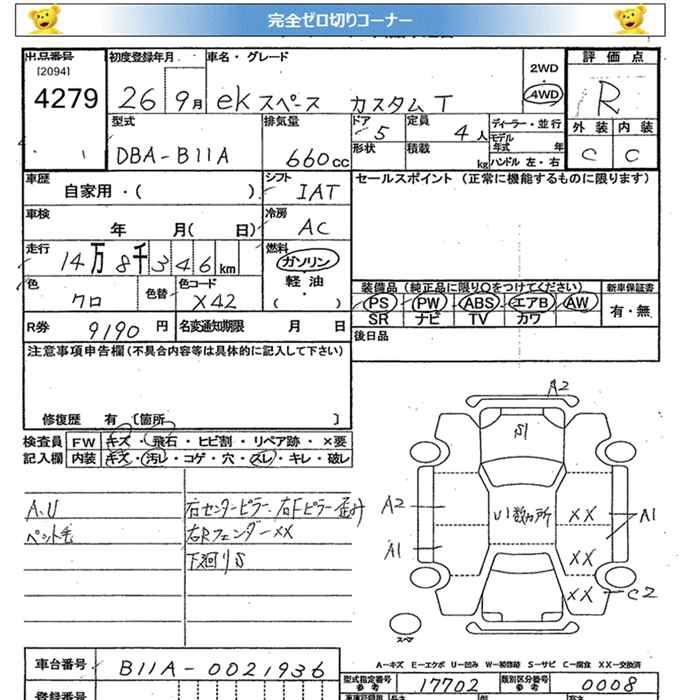 完全ゼロ切りコーナー
出品番号 初度登録年月 車名・グレード 評価点
[2094] 2WD
4279 26 9月 ek スペース カスタムT 4WD R
型式 排気量 ドア 定員 ディーラー・並行 外装 内装
5 4人 モデル年式 年
DBA-B11A 660cc 形状 積載 kg ハンドル 左・右 C C
車歴 シフト セールスポイント (正常に機能するものに限ります)
自家用・( ) IAT
車検 冷房
年 月( 日) AC
走行 燃料
14万8千346km ガソリン
色 色替 色コード 軽油 装備品 (純正品に限り○をつけてください) 新車保証書
クロ X42 ( ) PS PW ABS エアB AW 有・無
SR ナビ TV カワ
R券 9190円 名変通知期限 月 日 後日品
注意事項申告欄(不具合内容等は具体的に記入して下さい)
修復歴 有 [箇所 ]
検査員 FW キズ・飛石・ヒビ割・リペア跡・×要
記入欄 内装 キズ・汚レ・コゲ・穴・スレ・キレ・破レ
A2
S1
A.U 右センターピラー、右Fピラー歪み
ペット毛 右Rフェンダー××
下廻りS
A2 U1数ヵ所 XX A1
A1 XX
XX C2
スペア
A―キズ E―エクボ U―凹み W―補修跡 S―サビ C―腐食 XX―交換済
車台番号 B11A-0021936
型式指定番号 参考 17702 類別区分番号 参考 0008
登録番号